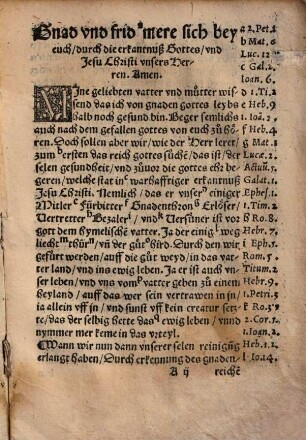 Gnad vnd frid ᵃmere sich bey
euch/durch die erkantnuß Gottes/vnd
Jesu Christi vnsers Her-
ren. Amen.
MJne geliebten vatter vnd můtter wiss
send das ich von gnaden gottes leybs
halb noch gesund bin. Beger semlichs
auch nach dem gefallen gottes von euch zů hö-
ren. Doch sollen aber wir/wie der Herr leret/
zum ersten das reich gottes sůche/das ist/der
selen gesundheit/vnd zůuor die eer Christi zhe
geren/welche stat in warhafftiger erkantnuß
Jesu Christi. Nemlich/das er vnser einiger
Mitler fürbitter Gnadenthron Erlöser/
Vertretter Bezaler/vnd Versüner ist vor
gott dem hymelische vatter. Ja der einig weg
liecht thür vn̄ der gůt hird. Durch den wir
gefürt werden/auff die gůt weyd/in das vat-
ter land/vnd ins ewig leben. Ja er ist auch vn-
ser leben/vnd vns vom vatter geben zů einem
heyland/auff das wer sein vertrawen in jn/
ia allein vff jn/vnd sunst vff kein creatur setz-
te/das der selbig hette das ewig leben/vnnd
nymmer mer keme in das vrteyl.
Wann wir nun dann vnserer selen reinigūg
erlangt haben/Durch erkennung des gnaden-
A ij reiche
a 2. Pet. 1
b Mat. 6
Luc. 12
c Gal. 2
Ioan. 6.
d 1. Ti. 2
e Heb. 9
f Heb. 4
g Mat. 1
Lucæ. 2
Galat. 1
Ephes. 1
k Ro. 8.
i Eph. 5
Rom. 5
Titum. 2
Hebr. 9.
p 1. Petri. 5
q Ro. 3
2. Cor. 1
1. Ioan. 2
k Heb. 1
l Io. 14.